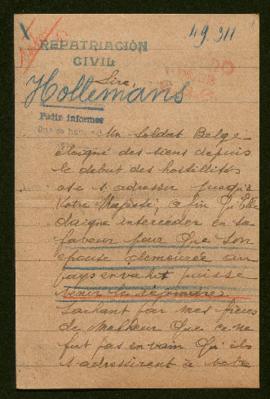 49.311
REPATRIACIÓN
CIVIL
Sire,
Hollemans
Pedir informes
Un soldat Belge
éloigné des siens depuis
le début des hostilités
ose s'adresser jusqu'à
Votre Majesté, afin qu'Elle
daigne intercéder en sa
faveur pour que son
épouse demeurée au
pays envahi puisse
venir le rejoindre
Sachant par mes frères
de malheur que ce ne
fut pas en vain qu'ils
s'adressèrent à votre